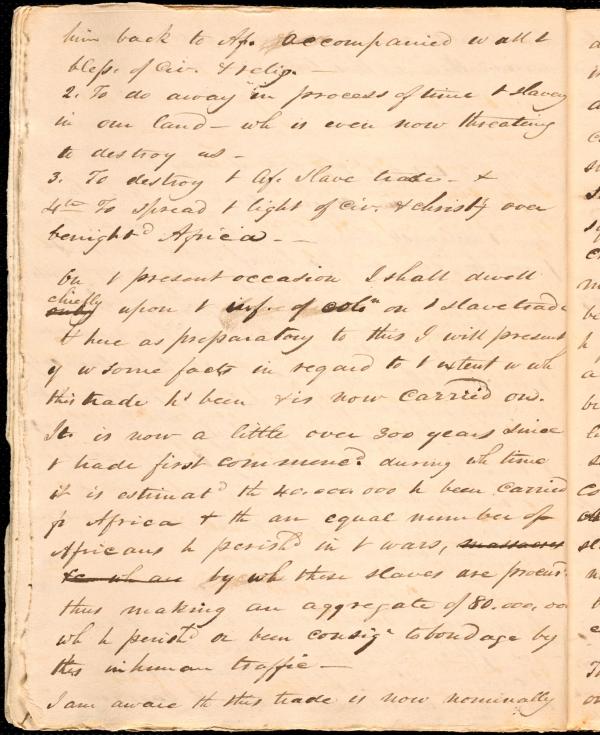 him back to Af. accompanied w all t
bless. of civ. & relig. —
2. To do away in process of time t slavery
in our land — wh is even now threating
to destroy us —
3. To destroy t Af. slave trade — &
4th To spread t light of civ. & christy over
benight'd Africa. — —
On t present occasion I shall dwell
chiefly
only upon t inf. of coln on t slave trade
& here as preparatory to this I will present
y w some facts in regard to t extent w wh
this trade hs been & is now carried on.
It is now a little over 300 years since
t trade first commenc'd during wh time
it is estimat'd th 40.000.000 h been carried
fr Africa & th an equal number of
Africans h perish'd in t wars, massacres
&c wh are by wh these slaves are procur'd
thus making an aggregate of 80.000.000
wh h perish'd or been consig'd to bondage by
this inhuman traffic —
I am aware th this trade is now nominally